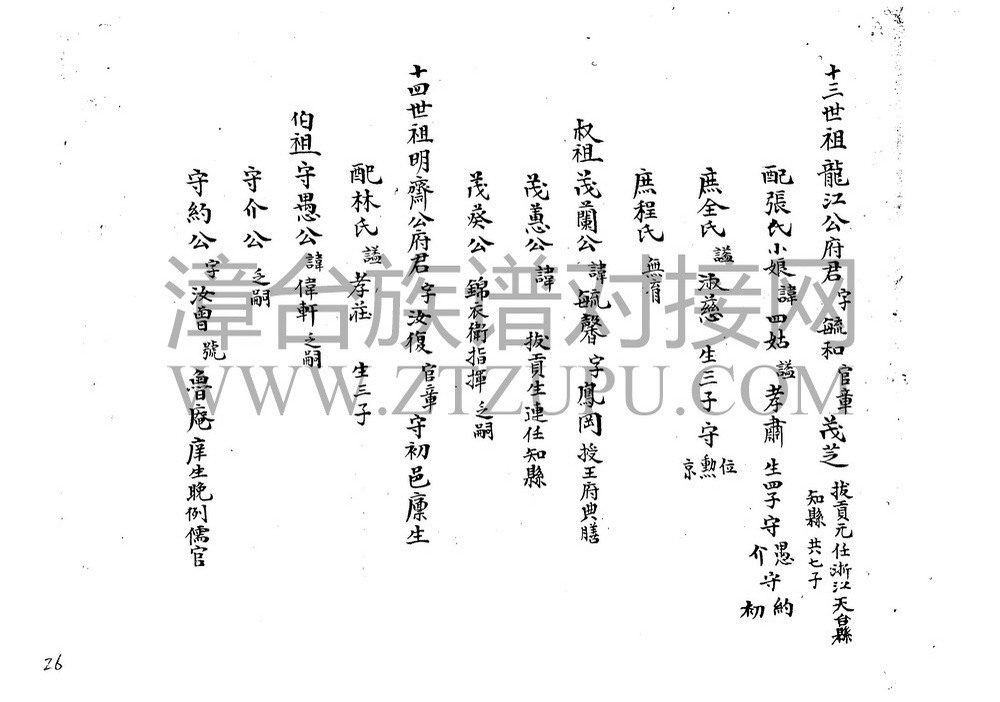 十三世祖龍江公府君字毓和官章茂芝拔貢元任浙江天台縣知縣共七子
配張氏小娘諱四姑謚孝肅生四子守愚守約介初
庶全氏謚淑慈生三子守位勲京
庶程氏無育
叔祖茂蘭公諱毓馨字鳳岡授王府典膳
茂蕙公諱拔貢生連任知縣
茂葵公錦衣衛指揮乏嗣
十四世祖明齋公府君字汝復官章守初邑廪生
配林氏謚孝莊生三子
伯祖守愚公諱偉軒乏嗣
守介公乏嗣
守約公字汝曾號魯庵庠生晚例儒官
26
漳台族谱对接网
WWW.ZTZUPU.COM